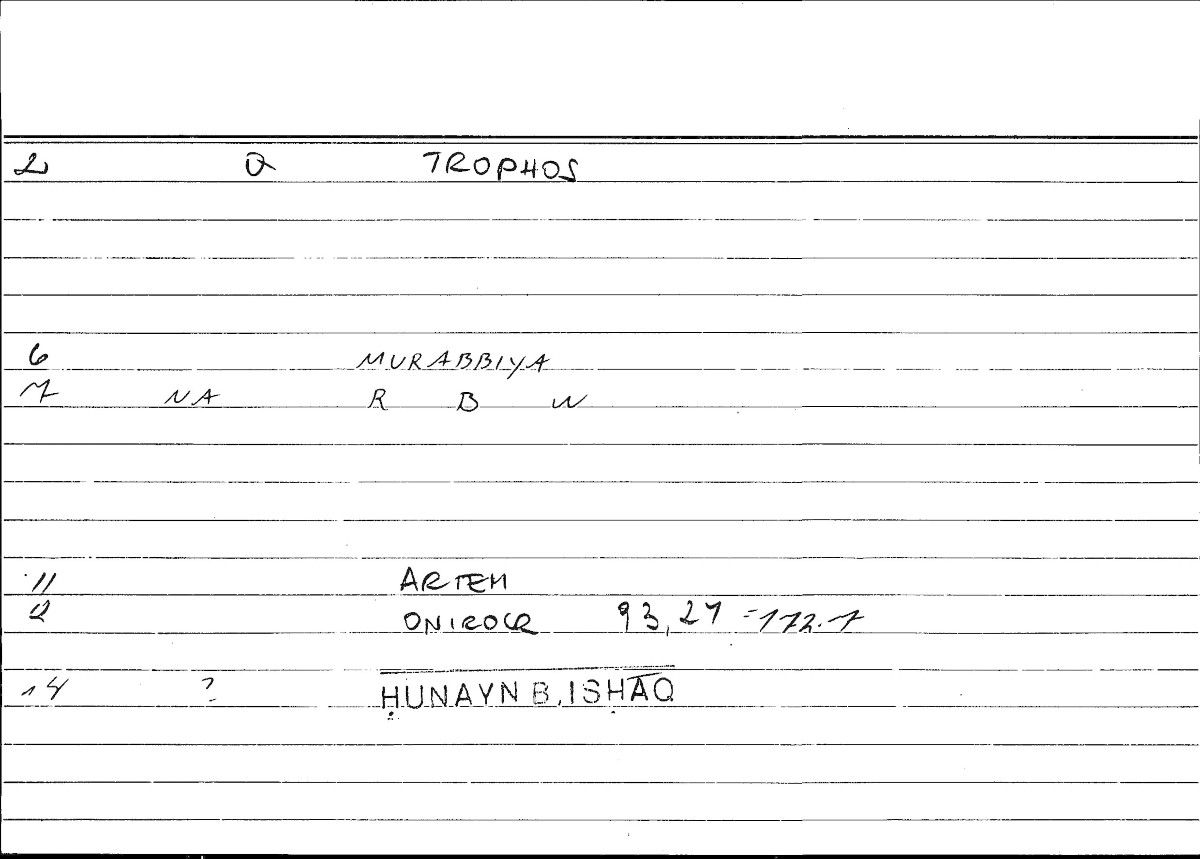 2 Q TROPHOS
6 MURABBIYA
7 NA R B W
11 ARTEM
12 ONIROCR 93,27 =172.7
14 ? ḤUNAYN B. ISḤĀQ